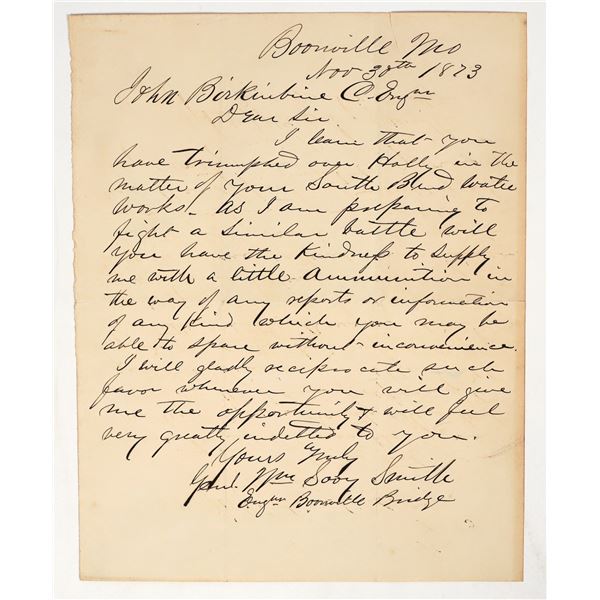 Boonville Mo
Nov 30th 1873
John Birkinbine C. Engr
Dear Sir
I learn that you
have triumphed over Holly in the
matter of your South Bend Water
works. As I am preparing to
fight a similar battle will
you have the Kindness to supply
me with a little Ammunition in
the way of any reports or information
of any Kind which you may be
able to spare without inconvenience.
I will gladly reciprocate such
favor whenever you will give
me the opportunity & will feel
very greatly indebted to you.
Yours Truly
Genl. Wm Sooy Smith
Engr Boonville Bridge